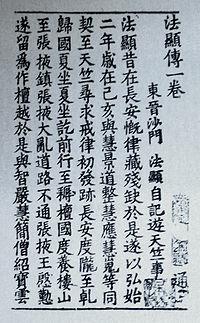 法顯傳一卷
東晉沙門 法顯 自記遊天竺事
法顯昔在長安慨律藏殘缺於是遂以弘始
二年歲在己亥與慧景道整慧應慧嵬等同
契至天竺尋求戒律初發跡長安度隴至乹
歸國夏坐夏坐訖前行至耨檀國度養樓山
至張掖鎮張掖大亂道路不通張掖王慇懃
遂留為作檀越於是與智嚴慧簡僧紹寶雲
通